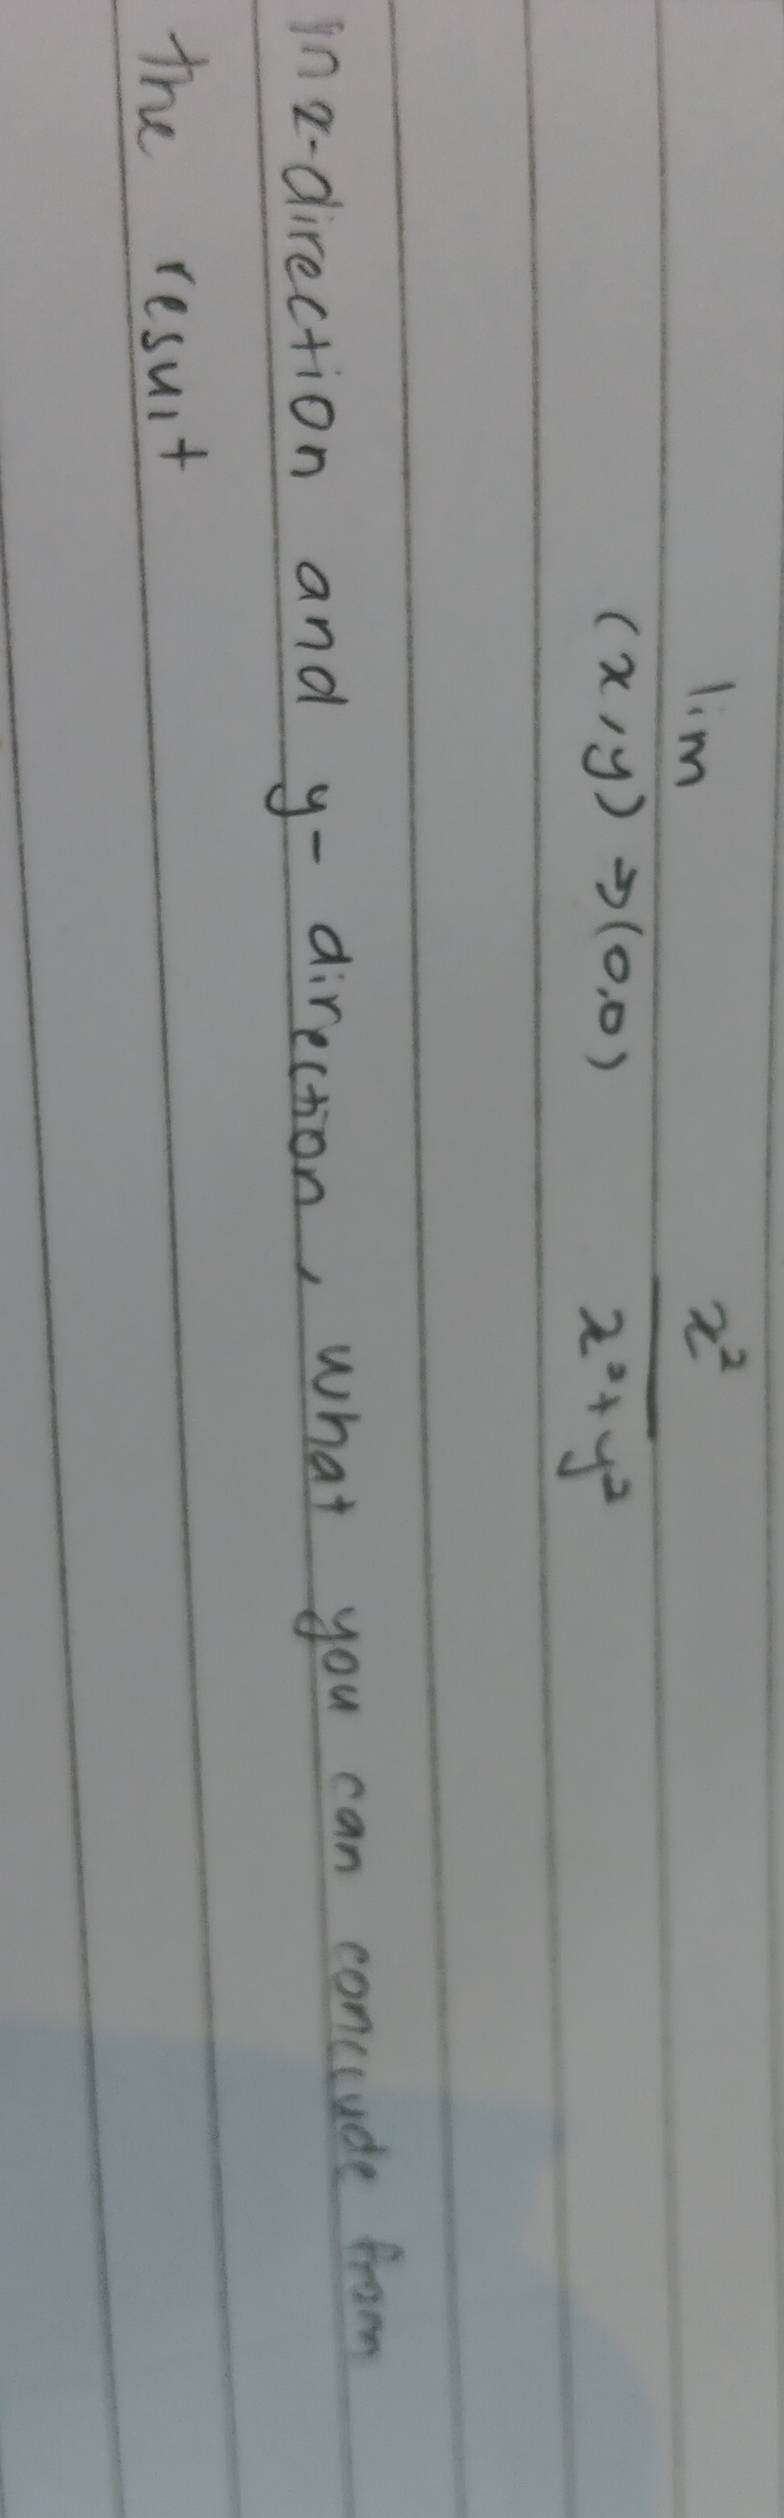 lim x²
(x,y)→(0,0) x²+y²
in x-direction and y-direction, what you can conclude from
the result